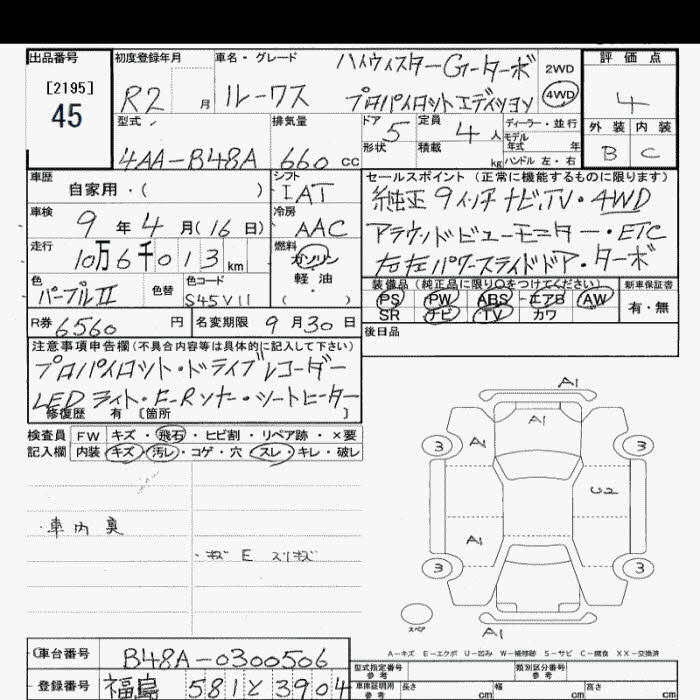 出品番号 初度登録年月 車名・グレード ハイウィスターGーターボ 2WD 評価点
[2195]
45 R2 月 ルークス プロパイロットエディション 4WD 4
型式 排気量 ドア 5 定員 4 人 ディーラー・並行 外装 内装
モデル
年式 年
4AA-B48A 660 cc 形状 積載 kg ハンドル 左・右 B C
車歴 シフト セールスポイント (正常に機能するものに限ります)
自家用・( ) IAT 純正9インチナビ,TV・4WD
車検 9 年 4 月(16 日) 冷房 AAC アラウンドビューモニター・ETC
走行 10万6千013 km 燃料 ガソリン 右左パワースライドドア・ターボ
軽油
( ・ )
色 パープルII 色替 色コード S45V11 装備品 (純正品に限り○をつけてください) 新車保証書
PS PW ABS エアB AW 有・無
SR ナビ TV カワ
R券 6560 円 名変期限 9 月 30 日 後日品
注意事項申告欄 (不具合内容等は具体的に記入して下さい)
プロパイロット・ドライブレコーダー
LEDライト・F-Rソナー・シートヒーター
修復歴 有 〔箇所 〕
検査員 FW キズ・飛石・ヒビ割・リペア跡・×要
記入欄 内装 キズ・汚レ・コゲ・穴・スレ・キレ・破レ
A1
A1
3 A1 3
U2
・車内臭
・キズ E スリキズ
A1
3 3
スペア
A1
A-キズ E-エクボ U-凹み W-補修跡 S-サビ C-腐食 XX-交換済
車台番号 B48A-0300506 型式指定番号 類別区分番号
参考 参考
登録番号 福島 581と3904 車庫証明用 長さ 幅 高さ
参考 cm cm cm